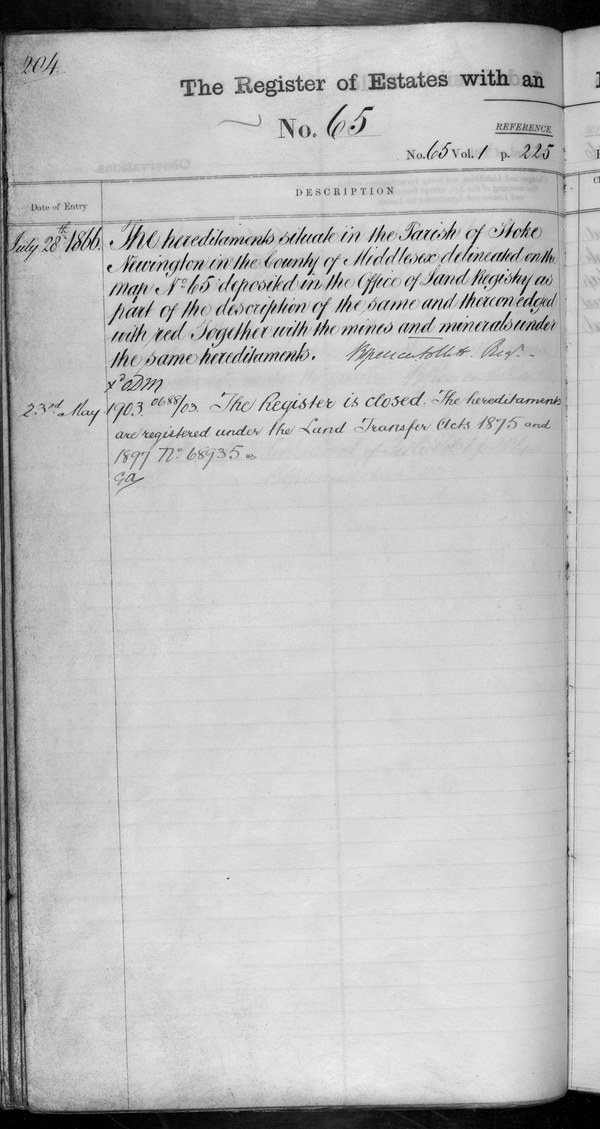 204
The Register of Estates with an
No. 65
REFERENCE.
No. 65 Vol. 1 p. 225
DESCRIPTION
Date of Entry
July 28th 1866. The hereditaments situate in the Parish of Stoke
Newington in the County of Middlesex delineated on the
map No. 65 deposited in the Office of Land Registry as
part of the description of the same and thereon edged
with red Together with the mines and minerals under
the same hereditaments. Regr.
23rd May 1903. 0688/03. The Register is closed. The hereditaments
are registered under the Land Transfer Acts 1875 and
1897 No. 68935.